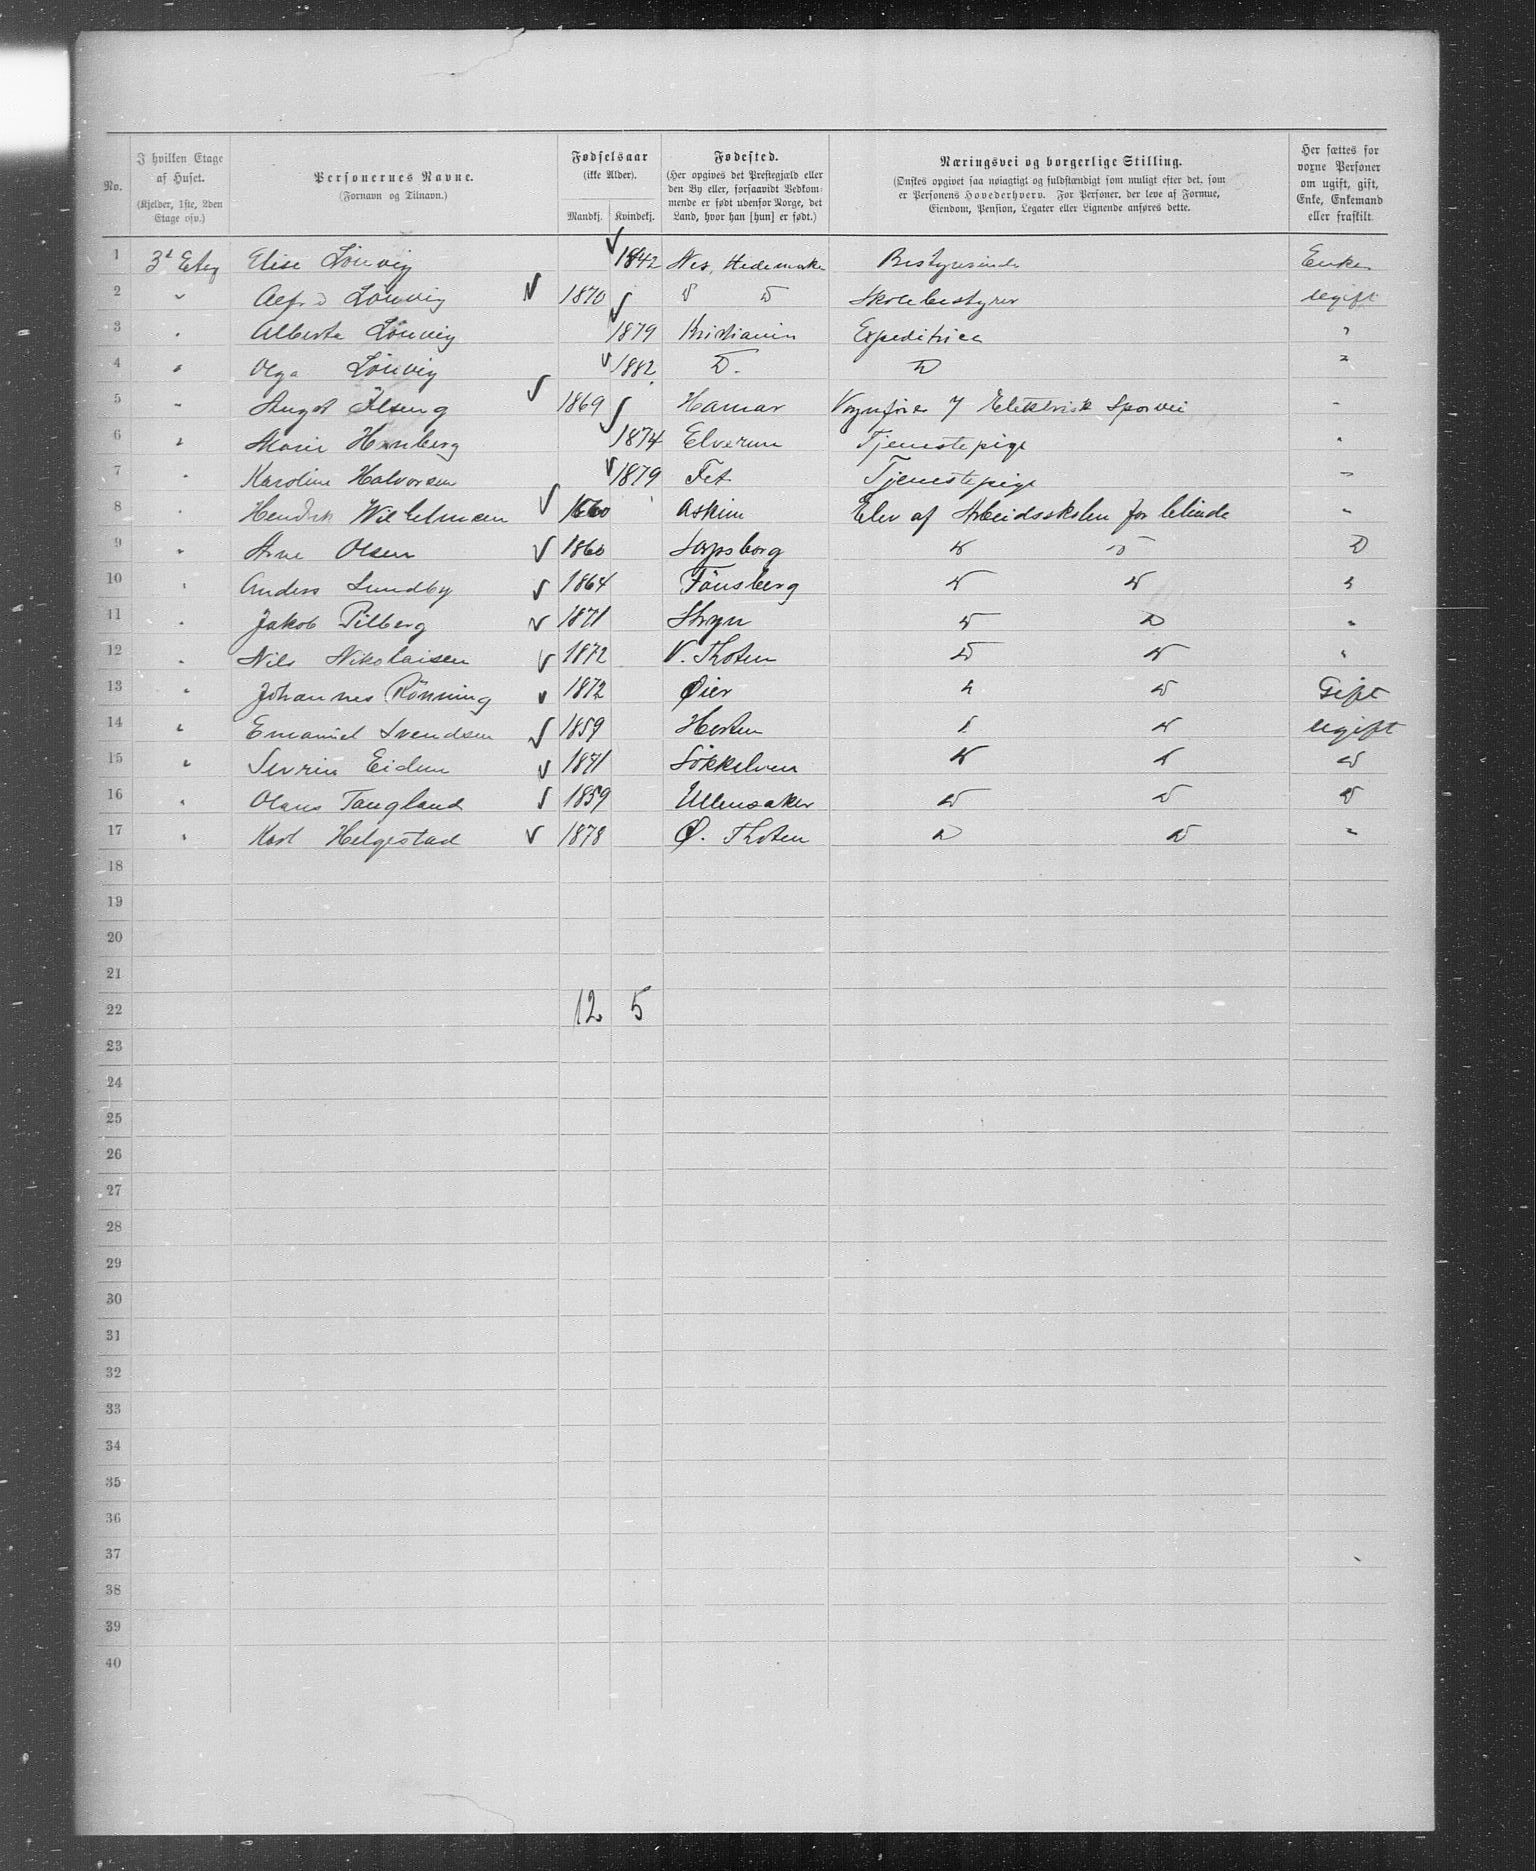 No. | I hvilken Etage af Huset. (Kjelder, 1ste, 2den Etage osv.) | Personernes Navne. (Fornavn og Tilnavn.) | Fødselsaar (ikke Alder). Mandkj. | Kvindekj. | Fødested. (Her opgives det Prestegjæld eller den By eller, forsaavidt Vedkommende er født udenfor Norge, det Land, hvor han [hun] er født.) | Næringsvei og borgerlige Stilling. (Ønskes opgivet saa nøiagtigt og fuldstændigt som muligt efter det, som er Personens Hovederhverv. For Personer, der leve af Formue, Eiendom, Pension, Legater eller Lignende anføres dette. | Her sættes for voxne Personer om ugift, gift, Enke, Enkemand eller fraskilt.
1 3d Etg Elise Lönvig √ 1842 Nes, Hedemarken Bestyrerinde Enke
2 " Alfred Lönvig √ 1870 D D Skolebestyrer ugift
3 " Alberta Lönvig √ 1879 Kristiania Expeditrice "
4 " Olga Lönvig √ 1882 D. D "
5 " August Ilseng √ 1869 Hamar Vognfører Elektrisk Sporvei "
6 " Marie √ 1874 Elverum Tjenestepige "
7 " Karoline Halvorsen √ 1879 Fet Tjenestepige "
8 " Hendrik Wilhelmsen √ 1860 Askim Elev af Arbeidsskolen for blinde "
9 " Arne Olsen √ 1860 Sarpsborg D D D
10 " Anders Lundby √ 1864 Tönsberg D D "
11 " Jakob Pilberg √ 1871 Stryn D D "
12 " Nils Nikolaisen √ 1872 V. Thoten D D "
13 " Johannes Rönning √ 1872 Øier D D Gift
14 " Emanuel Svendsen √ 1859 Horten D D ugift
15 " Sevrin Eidem √ 1871 Sökkelven D D D
16 " Olaus Tangland √ 1859 Ullensaker D D D
17 " Karl Helgestad √ 1878 Ø. Thoten D D "
18
19
20
21
22 12 5
23
24
25
26
27
28
29
30
31
32
33
34
35
36
37
38
39
40